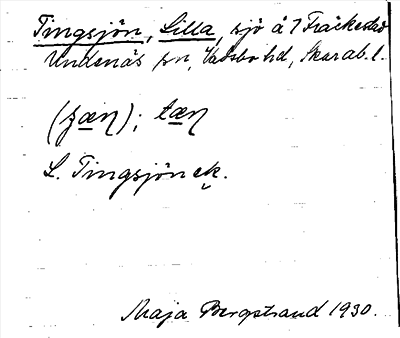 Tingsjön, Lilla, sjö å 7 Fräckestad
Undenäs sn, Vadsbo hd, Skarab. l.
L. Tingsjön ek.
Maja Bergstrand 1930.